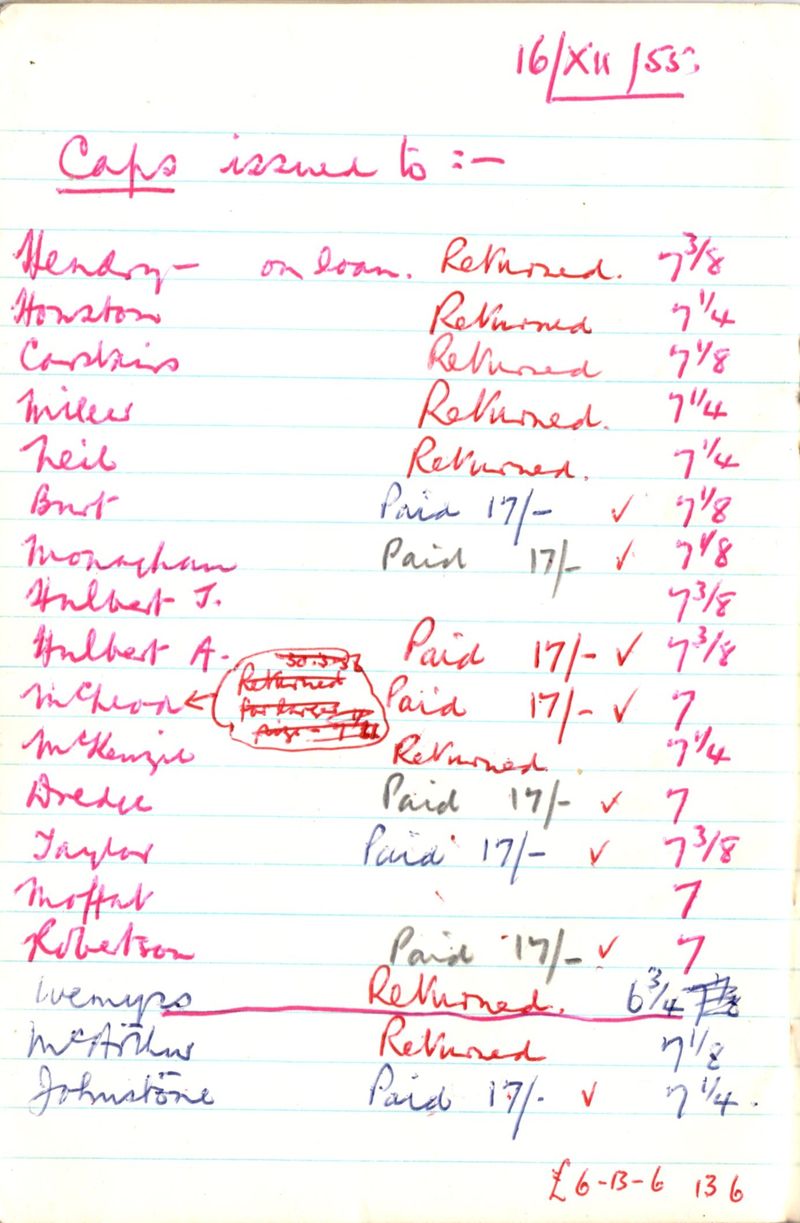 16/XII/55.
Caps issued to :—
Hendry — on loan. Returned. 7 3/8
Houston Returned 7 1/4
Carstairs Returned 7 1/8
Miller Returned. 7 1/4
Neil Returned. 7 1/4
Burt Paid 17/- ✓ 7 1/8
Monaghan Paid 17/- ✓ 7 1/8
Hulbert J. 7 3/8
Hulbert A. Paid 17/- ✓ 7 3/8
30.3.56
Returned
for larger
size - 7
McLeod Paid 17/- ✓ 7
McKenzie Returned 7 1/4
Dredge Paid 17/- ✓ 7
Taylor Paid 17/- ✓ 7 3/8
Moffat 7
Robertson Paid 17/- ✓ 7
Wemyss Returned. 6 3/4
McArthur Returned 7 1/8
Johnstone Paid 17/- ✓ 7 1/4.
£6-13-6 136